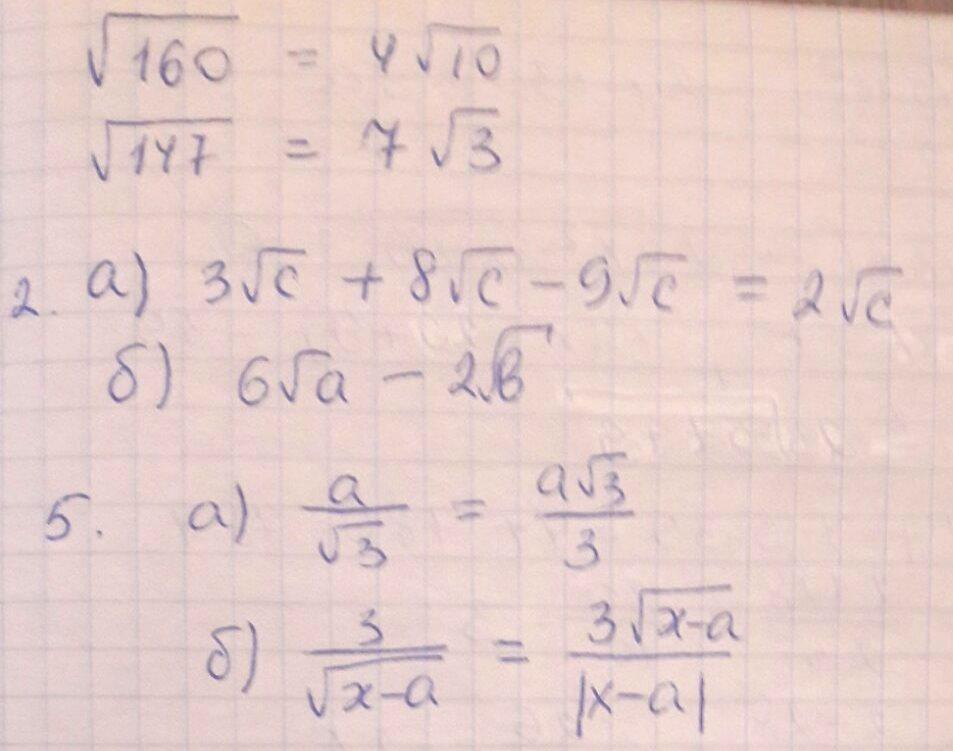 √160 = 4√10
√147 = 7√3
2. а) 3√c + 8√c - 9√c = 2√c
б) 6√a - 2√b
5. а) a/√3 = a√3/3
б) 3/√(x-a) = 3√(x-a)/|x-a|